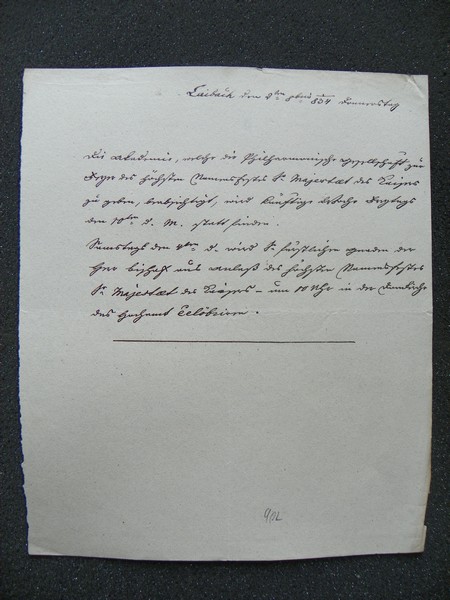 Laibach den 2ten 8ber 1834 Donnerstag
Die Akademie, welche die Philharmonische Gesellschaft zur
Feyer des höchsten Namensfestes Sr Majestaet des Kaisers
zu geben, beabsichtigt, wird künftige Woche Freytags
den 10ten d. M. statt finden.
Samstags den 4ten d. wird Se fürstliche Gnaden der
Herr Bischof aus Anlaß des höchsten Namensfestes
Sr Majestaet des Kaisers – um 10 Uhr in der Domkirche
das Hochamt Celebriren.